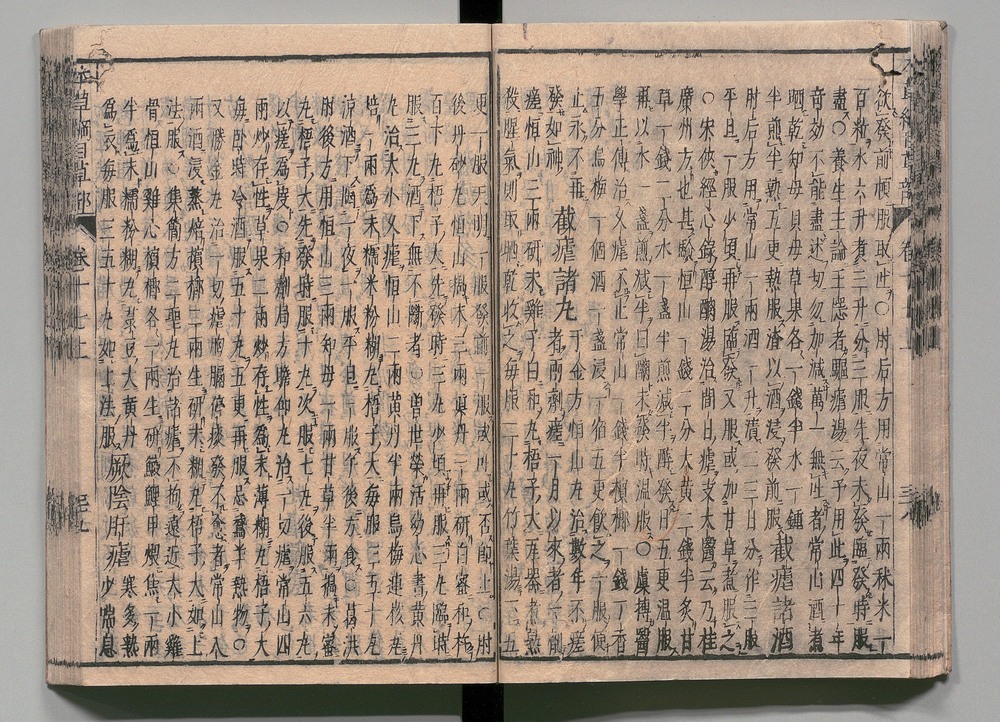 百粒水六升煮三升分三服先夜未發臨發時服
盡○養生主論王隱者驅瘧湯云予用此四十年
奇効不能盡述切勿加減萬一無失者常山酒煮
晒乾知母貝母草果各一錢半水一鍾
半煎半熟五更熱服渣以酒浸發前服截瘧諸酒
肘后方用常山一兩酒一升漬二三日分作三服
平旦一服少頃再服臨發又服或加甘草煮服之
○宋俠經心錄醇醨湯治間日瘧支太醫云乃桂
廣州方也甚驗恒山一錢二分大黃二錢半炙甘
草一錢二分水一盞半煎減半醇發日五更温服
再以水一盞煎減半曰醨未發時温服○虞摶醫
學正傳治久瘧不止常山一錢半檳榔一錢丁香
五分烏梅一個酒一盞浸一宿五更飲之一服便
止永不再發如神截瘧諸丸千金方恒山丸治數年不瘥
者兩劑瘥一月以來者一劑
瘥恒山三兩研末雞子白和丸梧子大瓦器煮熟
殺腥氣則取晒乾收之每服二十丸竹葉湯下五
更一服天明一服發前一服或吐或否即止○肘
後丹砂丸恒山搗末三兩真丹一兩研白蜜和杵
百下丸梧子大先發時三丸少頃再服三丸臨時
服三丸酒下無不斷者○曾世榮活幼心書黃丹
丸治大小久瘧恒山二兩黃丹半兩烏梅連核瓦
焙一兩爲末糯米粉糊丸梧子大每服三五十丸
涼酒下隔一夜一服平旦一服午後方食○葛洪
肘後方用恒山三兩知母一兩甘草半兩搗末蜜
丸梧子大先發時服十丸次服七丸後服五六丸
以瘥爲度○和劑局方瞻仰丸治一切瘧常山四
兩炒存性草果二兩炒存性爲末薄糊丸梧子大
每卧時冷酒服五十丸五更再服忌鵞羊熱物○
又勝金丸治一切瘧胸膈停痰發不愈者常山八
兩酒浸蒸焙檳榔二兩生研末糊丸梧子大如上
法服○集簡方二聖丸治諸瘧不拘遠近大小雞
骨恒山雞心檳榔各一兩生研鯪鯉甲煨焦一兩
半爲末糯粉糊丸菉豆大黃丹爲衣每服三五十丸如上法服厥陰肝瘧寒多熱
少喘息